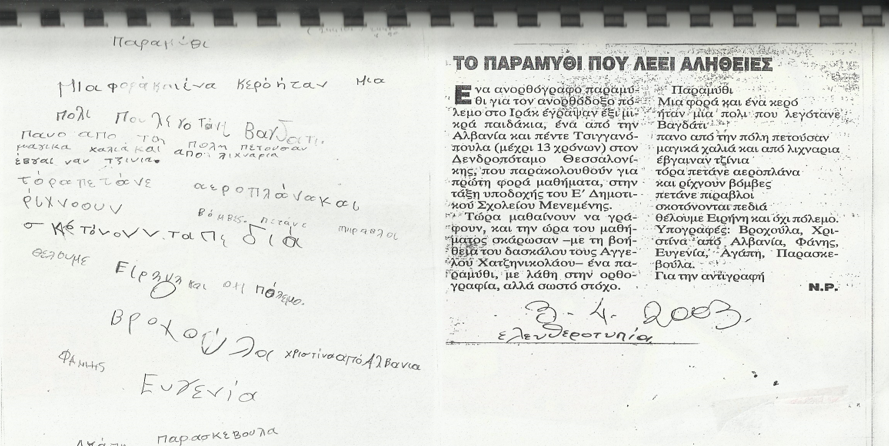 Παραμύθι
Μια φοράκαιένα κερόήταν μια
πολι που λεγόταν Βαγδατι
πανο απο την πολη πετούσαν
μαγικα χαλιά και απο λιχναρια
έβγαι ναν τζινια
τόραπετάνε αεροπλάνακαι
ρίχνουν βόμβες πετάνε πιραβλοι
σκοτόνονν.τα πε διά
θέλουμε Ειρήνη και όχι πόλεμο.
Βροχούλα χριστίνααπόΑλβανια
ΦΑΝΗΣ
Ευγενία
Αγάπη παρασκεβουλα
ΤΟ ΠΑΡΑΜΥΘΙ ΠΟΥ ΛΕΕΙ ΑΛΗΘΕΙΕΣ
Ένα ανορθόγραφο παραμύ-
θι για τον ανορθόδοξο πό-
λεμο στο Ιράκ έγραψαν έξι μι-
κρά παιδάκια, ένα από την
Αλβανία και πέντε Τσιγγανό-
πουλα (μέχρι 13 χρόνων) στον
Δενδροπόταμο Θεσσαλονί-
κης, που παρακολουθούν για
πρώτη φορά μαθήματα, στην
τάξη υποδοχής του Ε' Δημοτι-
κού Σχολείου Μενεμένης.
Τώρα μαθαίνουν να γρά-
φουν, και την ώρα του μαθή-
ματος σκάρωσαν –με τη βοή-
θεια του δασκάλου τους Αγγε-
λου Χατζηνικολάου– ένα πα-
ραμύθι, με λάθη στην ορθο-
γραφία, αλλά σωστό στόχο.
Παραμύθι
Μια φορά και ένα κερό
ήταν μια πολι που λεγότανε
Βαγδάτι
πανο από την πόλη πετούσαν
μαγικά χαλιά και από λιχναρια
έβγαιναν τζίνια
τόρα πετάνε αεροπλάνα
και ρίχγουν βόμβες
πετάνε πιραβλοι
σκοτόνονται πεδιά
θέλουμε Ειρήνη και όχι πόλεμο.
Υπογραφές: Βροχούλα, Χρι-
στίνα από Αλβανία, Φάνης,
Ευγενία, Αγάπη, Παρασκε-
βούλα.
Για την αντιγραφή
Ν.Ρ.
3-4.2003.
ελευθεροτυπία